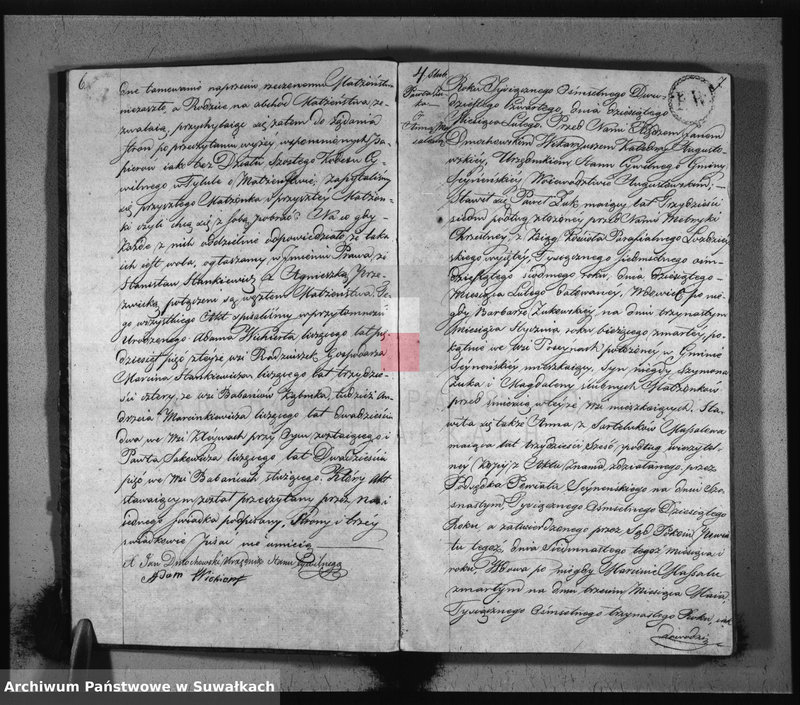 6.
dne tamowanie naprzeciw rzeczonemu Małżeństwu
niezaszło, a Rodzice na obchód Małżeństwa ze-
zwalają, przychylając się zatem do żądania
stron po przeczytaniu wyżey wspomnionych Pa-
pierów iako też Działu Szostego Kodexu Cy-
wilnego w Tytule o Małżeństwie; zapytaliśmy
się przyszłego Małżonka i przyszłey Małżon-
ki czyli chcą się z sobą pobrać? Na co gdy
każde z nich oddzielnie odpowiedziało, że taka
ich iest wola, ogłaszamy w Imieniu Prawa, że
Stanisław Stankiewicz, i Agnieszka
połączeni są węzłem Małżeństwa. Te-
go wszystkiego Akt spisaliśmy w przytomności
Urodzonego Adama Wichierta liczącego lat
dziesiąt pięć ze wsi Radziuszek Gospodarza
Marcina Stankiewicza liczącego lat trzydzie-
ści cztery, ze wsi Babaniców tudzież An-
drzeia Marcinkiewicza liczącego lat dwadzieścia
dwa we wsi przy Oycu zostaiącego i
Pawła liczącego lat Dwadzieścia
pięć we wsi Babanicach służącego. Który Akt
stawaiącym został przeczytany przez Nas i
iednego świadka podpisany, Strony i trzey
świadkowie pisać nie umieią
X Jan Dmochowski Urzędnik Stanu Cywilnego
Adam Wichiert
4. Ślub
Pawła
Żuka
z
Anną
7.
Roku Tysiącznego Ośmsetnego Dwu-
dziestego Czwartego, dnia Dziesiątego
Miesiąca Lutego. Przed Nami Xiędzem Janem
Dmochowskim Wikaryuszem Katedry Augusto-
wskiey, Urzędnikiem Stanu Cywilnego Gminy
Seyneńskiey, Woiewództwie Augustowskim, —
Stawił się Paweł Żuk, maiący lat Trzydzieści
siedm podług złożoney przed Nami Metryki
Chrzestney, z Xiąg Kościoła Parafialnego Łoździey-
skiego wyiętey, Tysiącznego siedmsetnego ośm-
dziesiątego siódmego roku, dnia Dziesiątego
Miesiąca Lutego datowaney, Wdowiec po nie-
gdy Barbarze Żukowskiey na dniu trzynastym
Miesiąca Stycznia roku bieżącego zmarłey, po-
kątnie we wsi Poseynach położoney w Gminie
Seyneńskiey mieszkaiący, Syn niegdy Szymona
Żuka i Magdaleny ślubnych Małżonków
przed śmiercią w teyże wsi mieszkaiących. Sta-
wiła się także Anna z Massalowa
maiąca lat trzydzieści sześć, podług wierzytel-
ney Kopii z Aktu znania zdziałanego, przez
Podsędka Powiatu Seyneńskiego na dniu Sze-
snastym Tysiącznego Ośmsetnego Dziesiątego
Roku, a zatwierdzonego przez Sąd Pokoiu Powia-
tu tegoż, dnia Siedmnastego tegoż miesiąca i
roku. Wdowa po niegdy Marcinie Massalu
zmarłym na dniu trzecim Miesiąca Maia,
Tysiącznego Ośmsetnego trzynastego Roku, iak
dowodzi
Archiwum Państwowe w Suwałkach